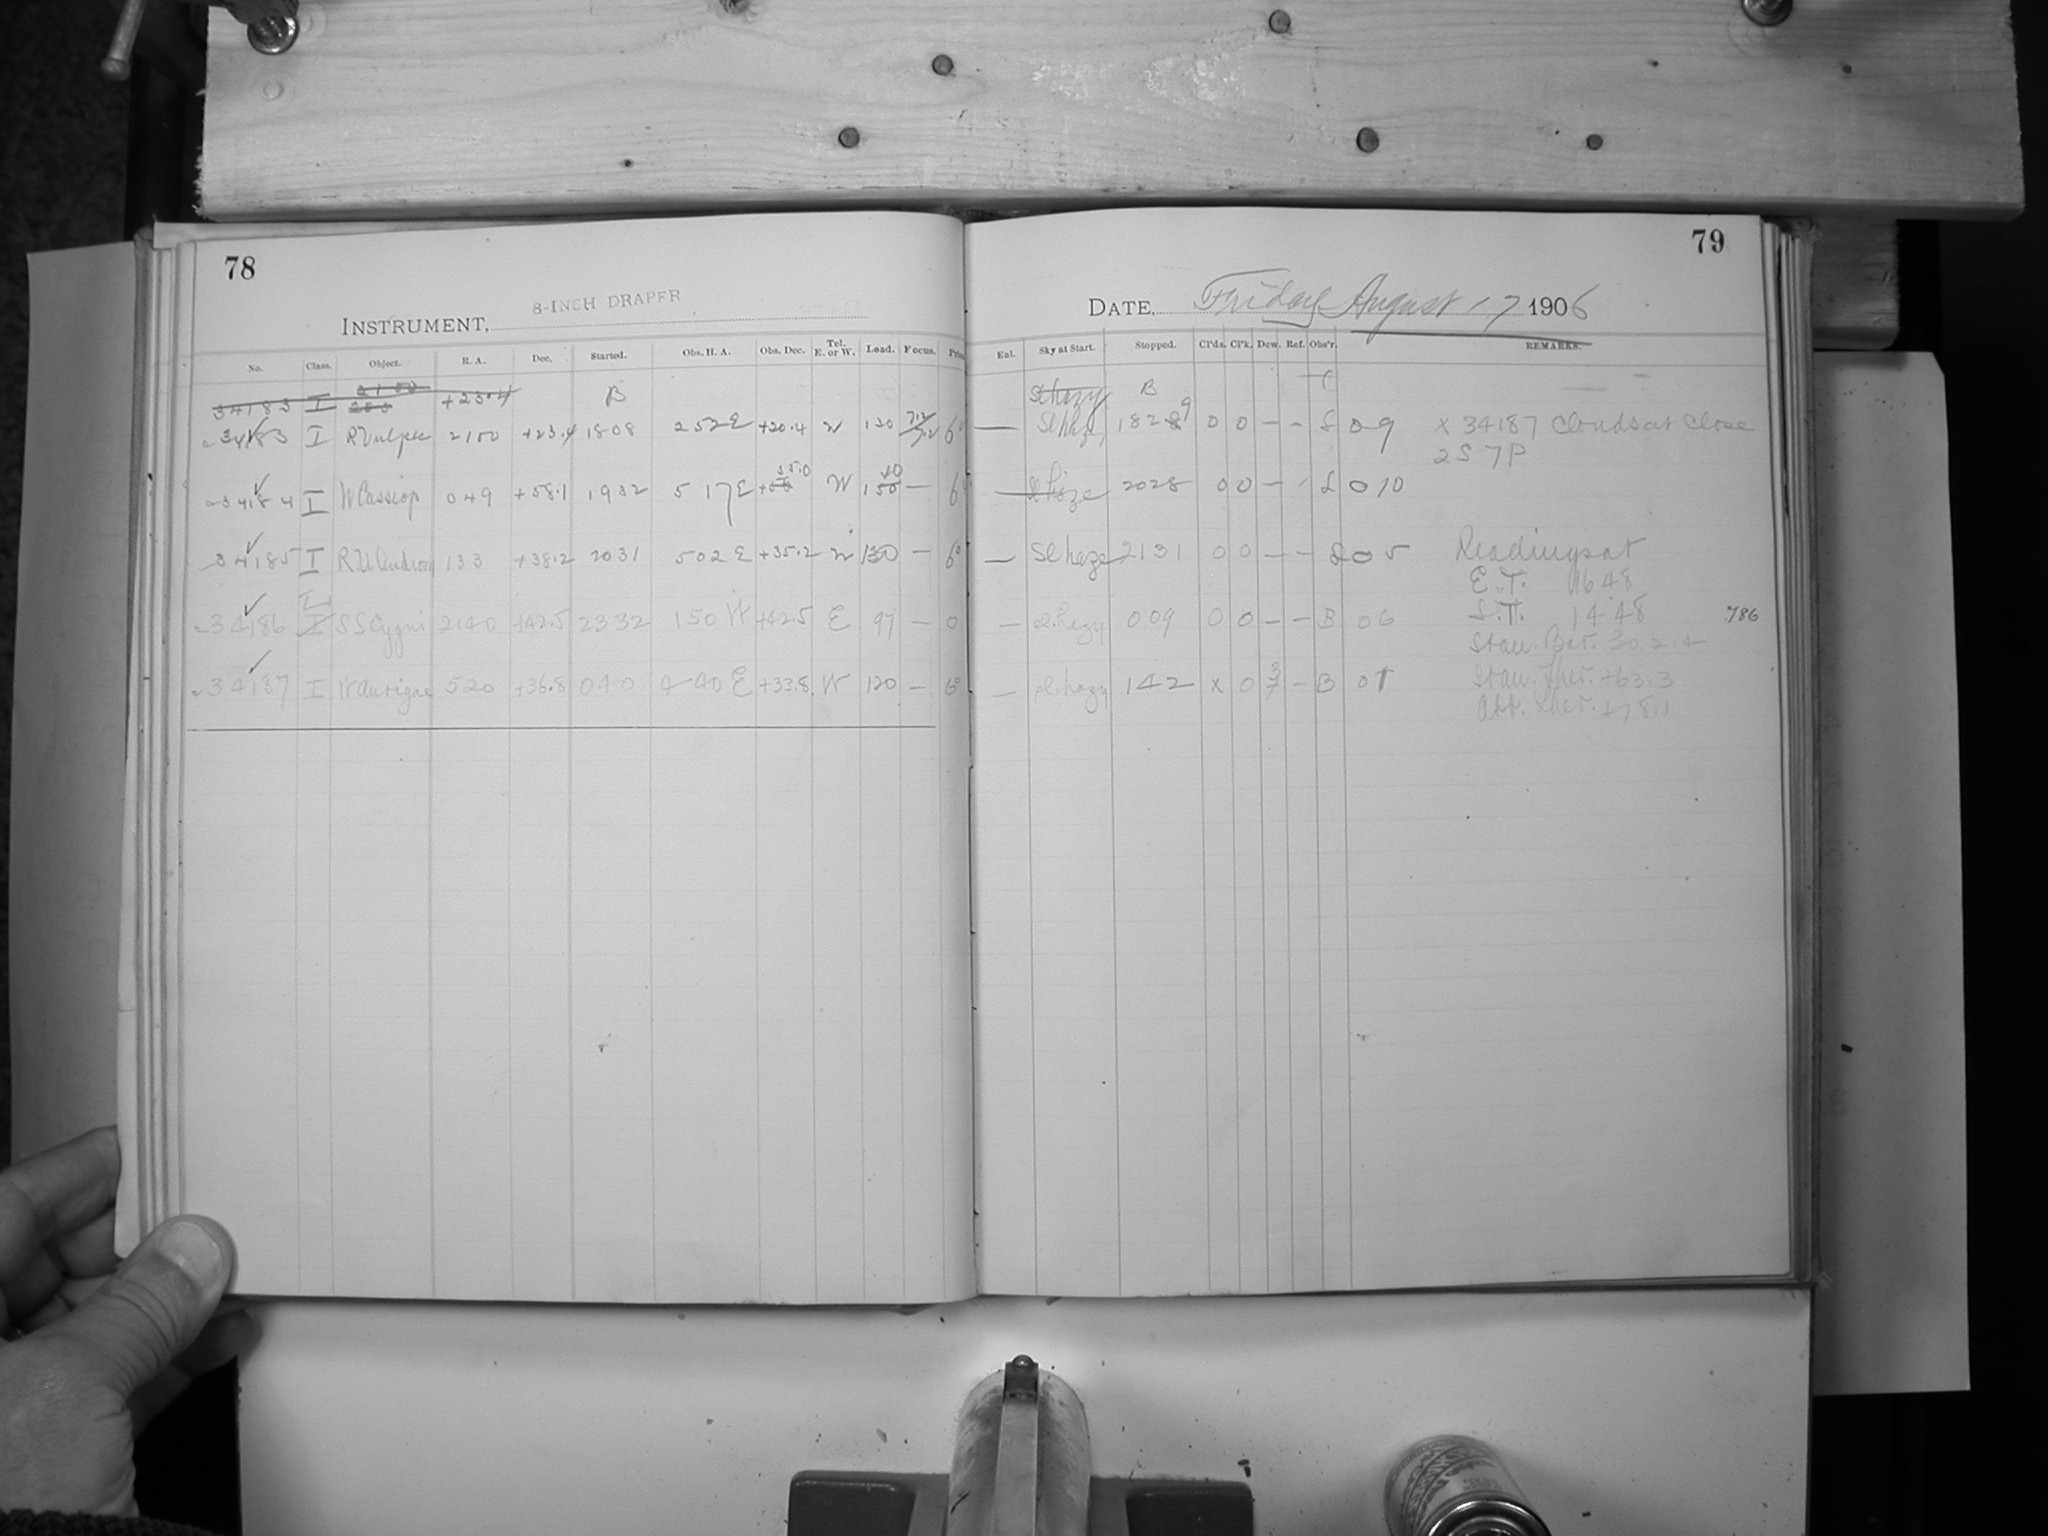 78
INSTRUMENT, 8-INCH DRAPER
No. Class. Object. R. A. Dec. Started. Obs. H. A. Obs. Dec. Tel. E. or W. Load. Focus.
34183 I 2100 +23.4 B
34183 I R Vulpec 2100 +23.4 1808 252 E +20.4 W 130 6
34184 I W Cassiop 049 +58.1 1932 517 E +55.0 W 6
34185 I R U Androm 133 +38.2 2031 502 E +35.2 W 130 — 6
34186 I SS Cygni 2140 +42.5 2332 150 W +42.5 E 97 — 0
34187 I W Aurigae 520 +36.8 040 4 40 E +33.8 W 120 — 6
79
DATE, Friday August 17 1906
Enl. Sky at Start. Stopped. Cl'ds. Cl'k. Dew. Ref. Obs'r. REMARKS.
Sl hazy B
— Sl haze 1829 0 0 – – L 09 x 34187 Clouds at close
2S 7P
— Sl haze 2028 0 0 – L 010
— Sl haze 2131 0 0 – – L 05 Readings at
E.T. 16 48
— sl. hazy 009 0 0 – – B 06 S.T. 14 48 786
Stan. Bar. 30.24
— sl. hazy 142 x 0 – B 01 Stan. Ther. +63.3
Att. Ther.